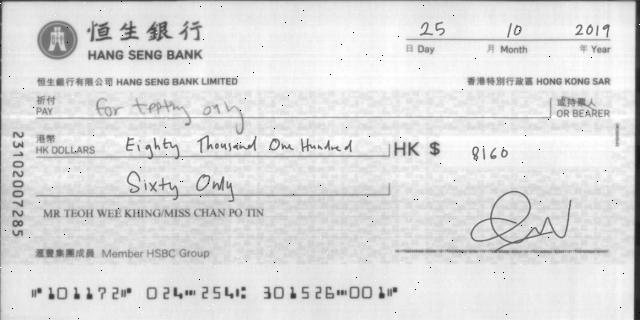 恒生銀行
HANG SENG BANK
25 10 2019
日 Day 月 Month 年 Year
恒生銀行有限公司 HANG SENG BANK LIMITED 香港特別行政區 HONG KONG SAR
祈付 PAY For testing only 或持票人 OR BEARER
港幣 HK DOLLARS Eighty Thousand One Hundred HK $ 8160
Sixty Only
MR TEOH WEE KHING/MISS CHAN PO TIN
滙豐集團成員 Member HSBC Group
23102007285
⑈101172⑈ 024⑉254⑆ 301526⑉001⑈